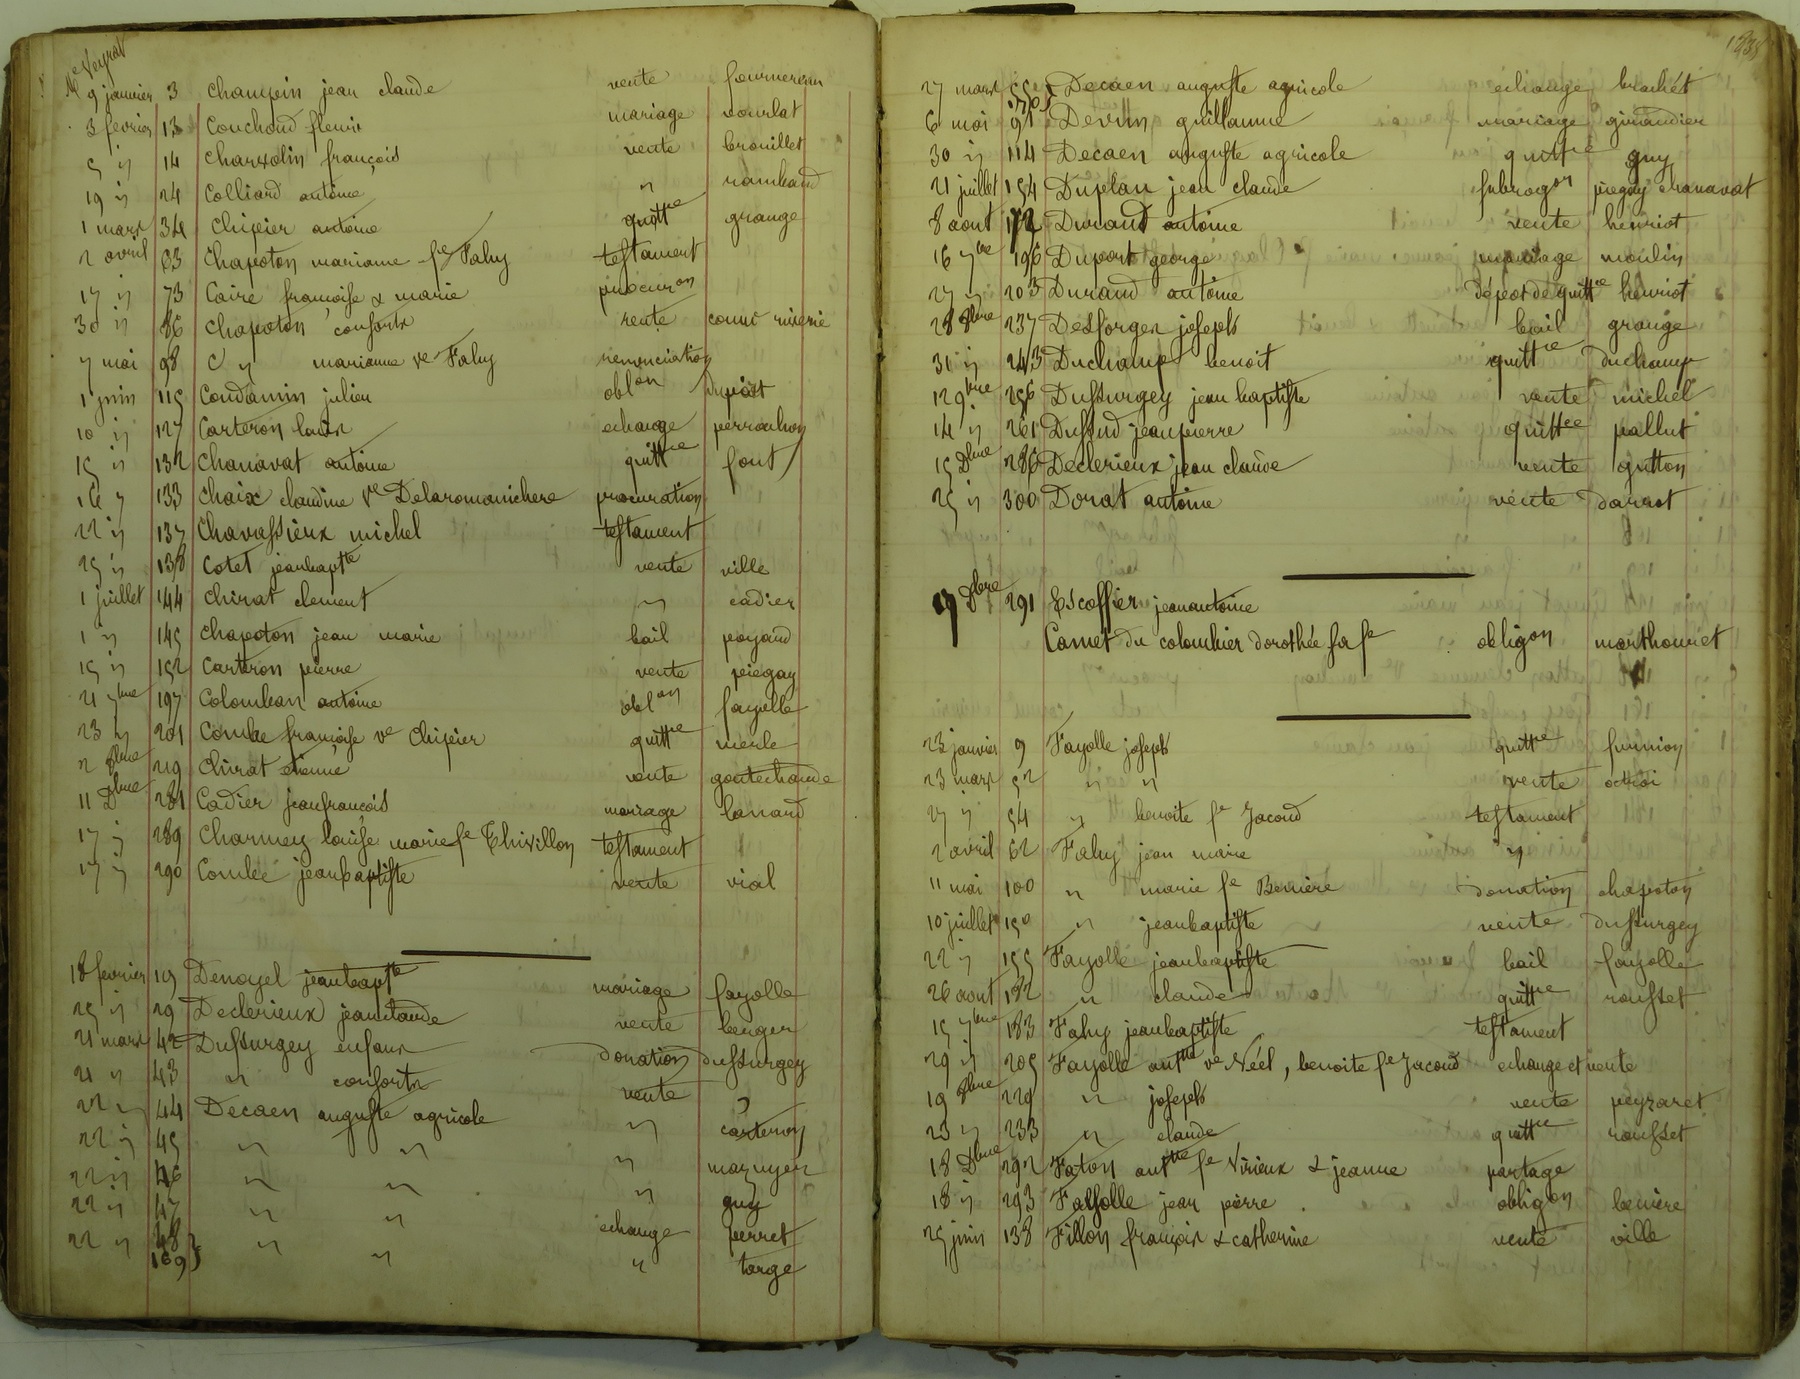 Me Veyrat
9 janvier 3 Champin jean claude vente fournereau
3 fevrier 13 Couchoud fleurie mariage vourlat
5 " 14 Charzolin françois vente brouillet
19 " 24 Colliard antoine " rambaud
1 mars 34 Chipier antoine quittce grange
2 avril 63 Chapoton marianne fe Fahy testament
17 " 73 Caire françoise & marie procuron
30 " 86 Chapoton consorts vente
7 mai 98 " marianne ve Fahy renonciation
1 juin 115 Condamin julien oblon dupoist
10 " 127 Carteron louis echange perrachon
15 " 132 Chanavat antoine quittce font
16 " 133 Chaix claudine Ve Delaromanichere procuration
22 " 137 Chavassieux michel testament
25 " 138 Cotet jeanbaptte vente ville
1 juillet 144 Chirat clement " cadier
1 " 145 Chapoton jean marie bail poyard
15 " 152 Carteron pierre vente piegay
21 7bre 197 Colomban antoine oblon fayelle
23 " 201 Combe françoise ve Chipier quittce merle
2 8bre 219 Chirat etienne vente goutechaude
11 Dbre 281 Cadier jeanfrançois mariage bonnard
17 " 289 Charmey louise marie fe Thivillon testament
17 " 290 Combe jeanbaptiste vente vial
18 fevrier 19 Denoyel jeanbaptte mariage fayolle
25 " 29 Declerieux jeanclaude vente berger
21 mars 42 Dussurgey enfans donation dussurgey
21 " 43 " consorts vente "
22 " 44 Decaen auguste agricole " carteron
22 " 45 " " " mazuyer
22 " 46 " " " guy
22 " 47 " " echange perret
22 " 48 " " " targe
169
27 mars Decaen auguste agricole echange brachet
170
6 mai 97 Devun guillaume mariage giraudier
30 " 114 Decaen auguste agricole quittce guy
21 juillet 154 Duplan jean claude subrogon piegay chanavat
8 aout 172 Durand antoine vente henriot
16 7bre 196 Duport george mariage moulin
27 " 203 Durand antoine dépôt de quittce henriot
28 8bre 237 Desforges joseph bail grange
31 " 243 Duchamp benoit quittce duchamp
12 9bre 256 Dussurgey jean baptiste vente michel
14 " 261 Dussud jeanpierre quittce pallut
15 Dbre 286 Declerieux jean claude vente guitton
25 " 300 Dorat antoine vente darnot
17 Dbre 291 Escoffier jeanantoine
Camet du colombier dorothée sa fe obligon marthouret
23 janvier 9 Fayolle joseph quittce
23 mars 52 " " vente octroi
27 " 54 " benoite fe Jacoud testament
2 avril 62 Fahy jean marie "
11 mai 100 " marie fe Benière donation chapoton
10 juillet 150 " jeanbaptiste vente dussurgey
22 " 155 Fayolle jeanbaptiste bail fayolle
26 aout 182 " claude quittce rousset
15 7bre 183 Fahy jeanbaptiste testament
29 " 205 Fayolle antte ve Néel, benoite fe Jacoud echange et vente
19 8bre 229 " joseph vente peyzaret
23 " 233 " claude quittce rousset
18 Dbre 292 Faton antte fe Virieux & jeanne partage
18 " 293 Fayolle jean pierre obligon beniere
25 juin 138 Fillon françois & catherine vente ville